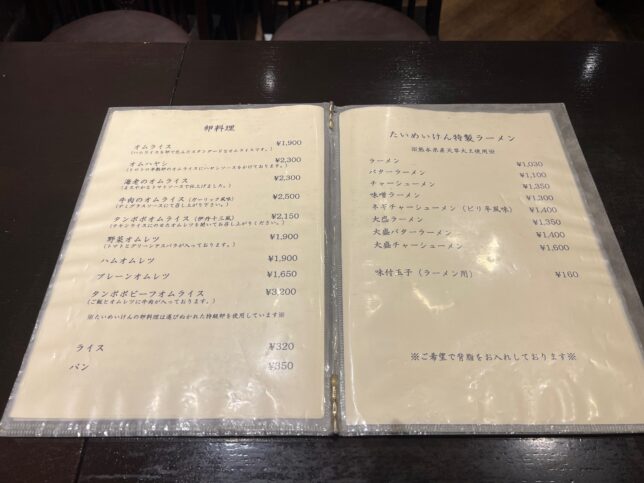 卵料理
オムライス ¥1,900
オムハヤシ ¥2,300
海老のオムライス ¥2,300
(まろやかなトマトソースで仕上げました。)
牛肉のオムライス(ガーリック風味) ¥2,500
(デミグラスソースにてお召し上がり下さい。)
タンポポオムライス(伊丹十三風) ¥2,150
野菜オムレツ ¥1,900
(トマトとグリーンアスパラが入っております。)
ハムオムレツ ¥1,900
プレーンオムレツ ¥1,650
タンポポビーフオムライス ¥3,200
(ご飯とオムレツに牛肉が入っております。)
※たいめいけんの卵料理は選びぬかれた特級卵を使用しています※
ライス ¥320
パン ¥350
たいめいけん特製ラーメン
ラーメン ¥1,030
バターラーメン ¥1,100
チャーシューメン ¥1,350
味噌ラーメン ¥1,300
ネギチャーシューメン(ピリ辛風味) ¥1,400
大盛ラーメン ¥1,350
大盛バターラーメン ¥1,400
大盛チャーシューメン ¥1,600
味付玉子(ラーメン用) ¥160
※ご希望で背脂をお入れしております※